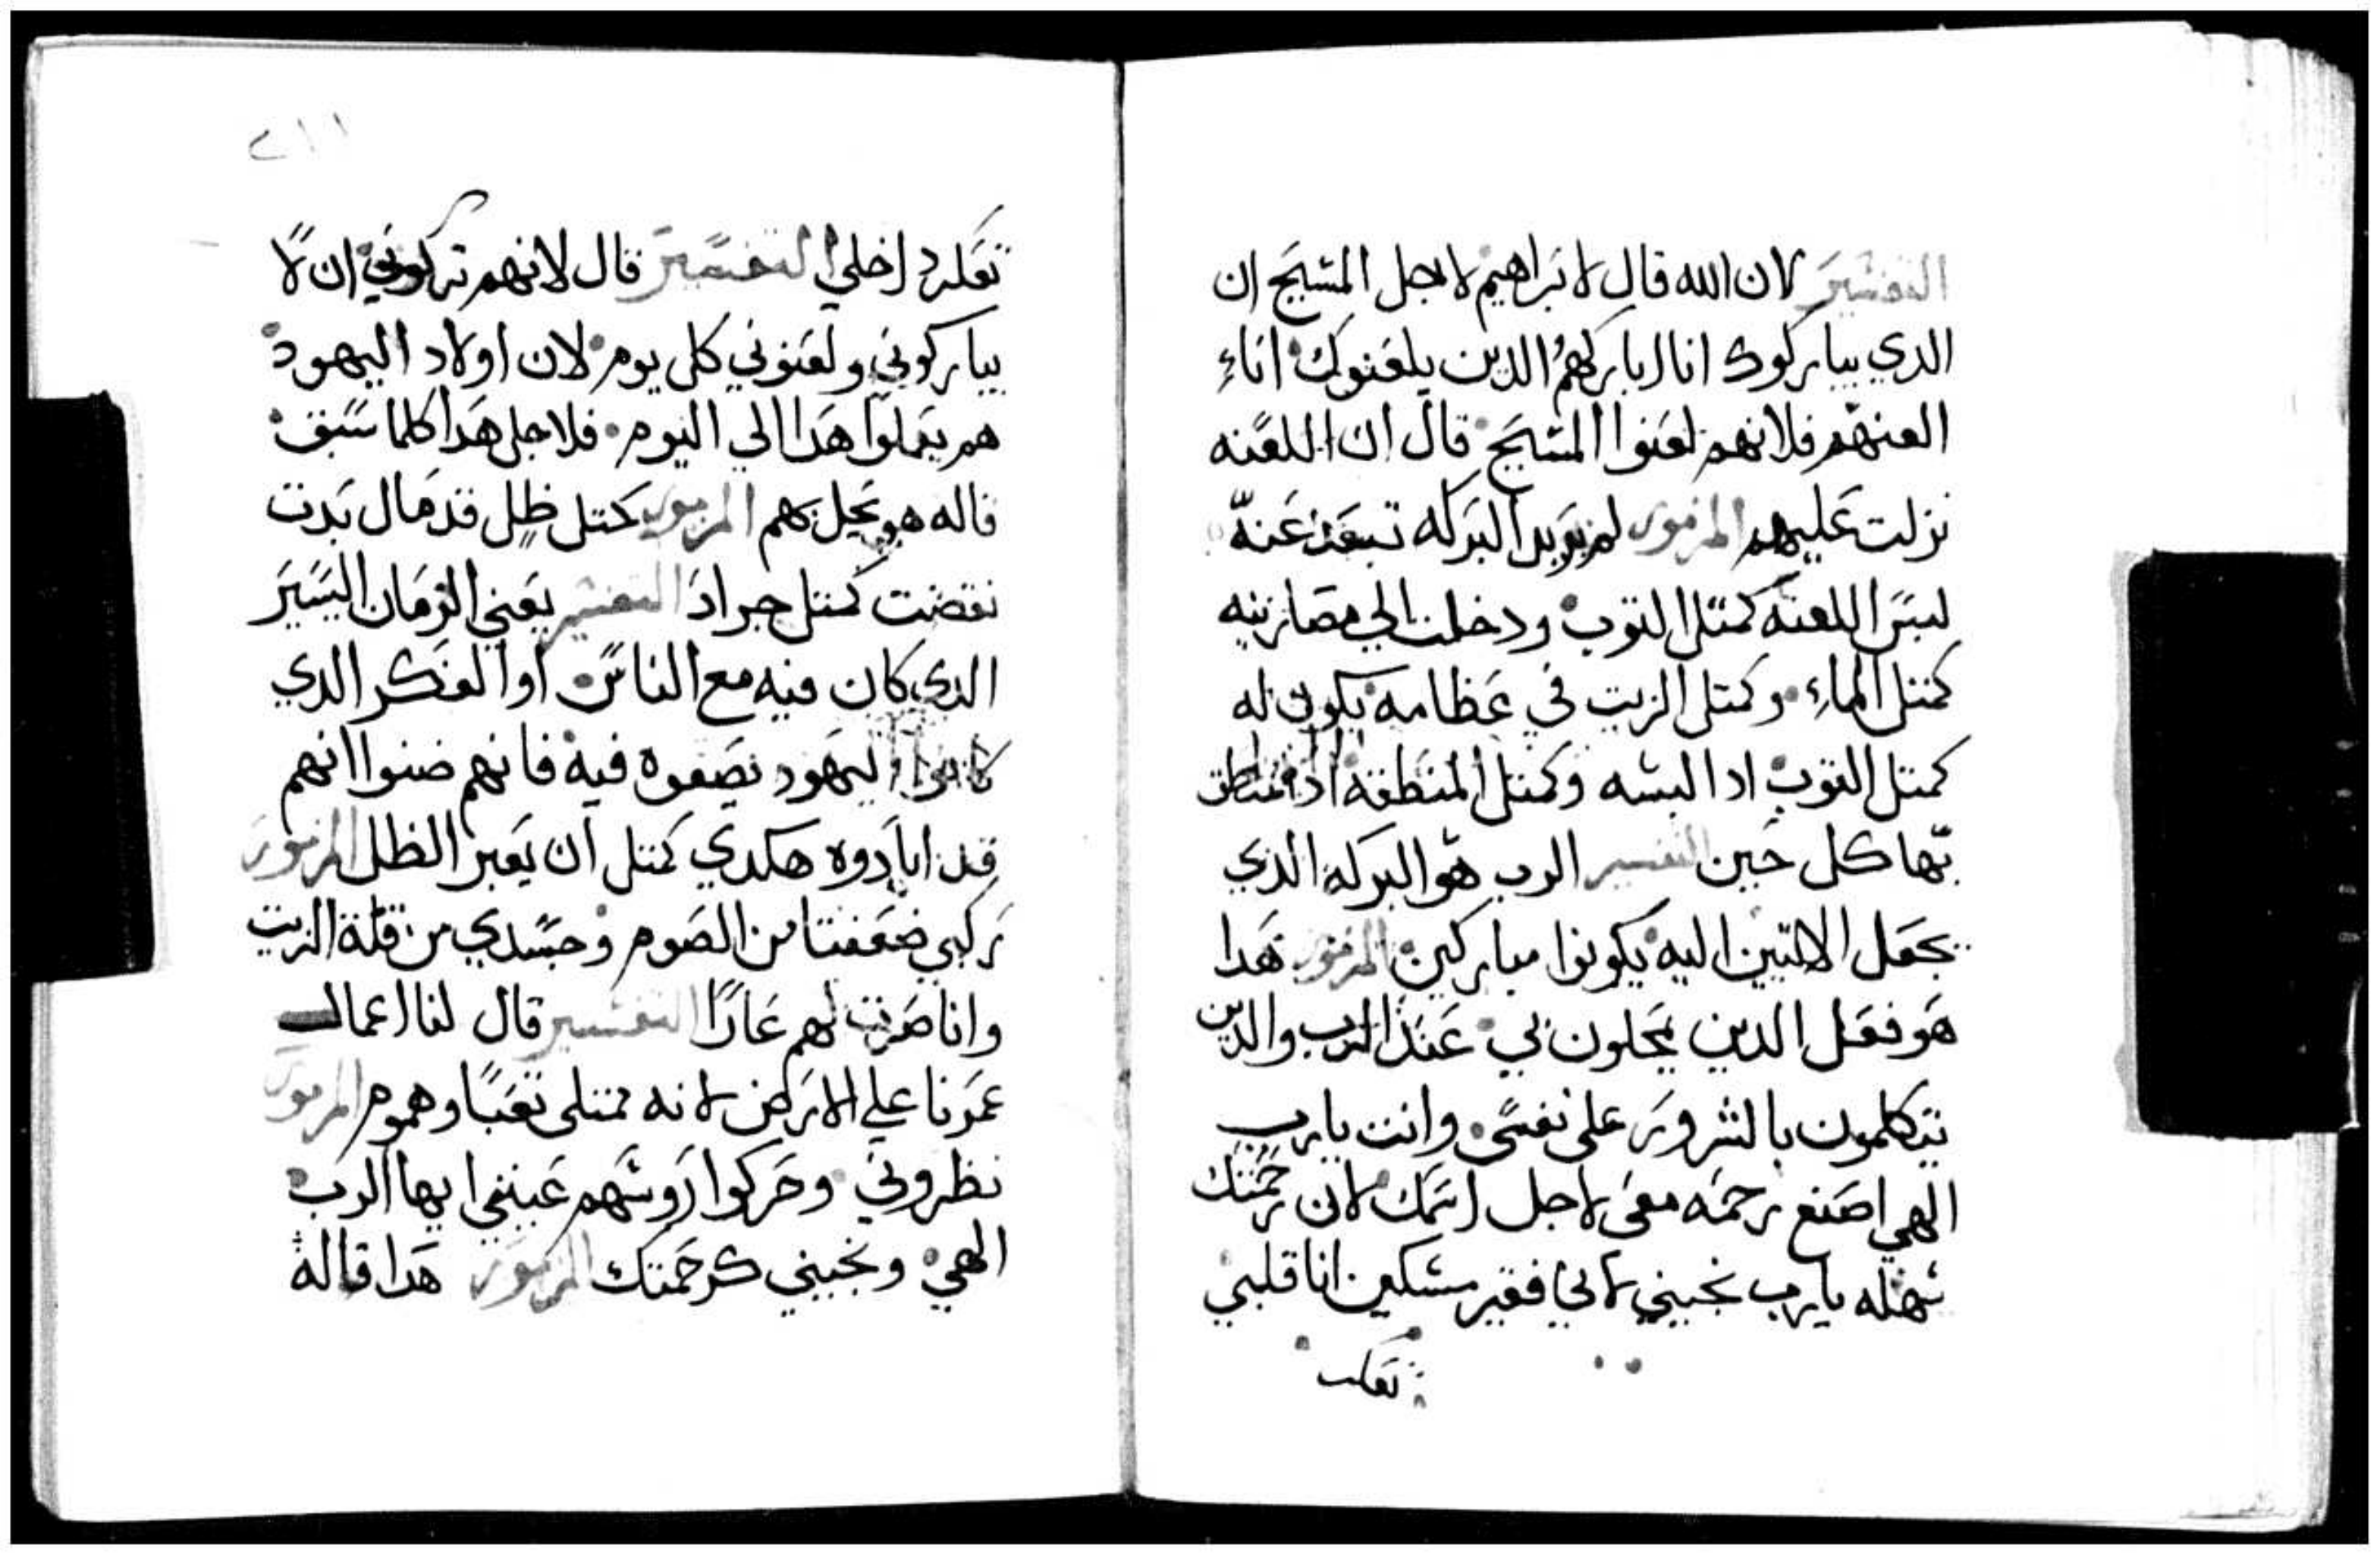 التفسير لان الله قال لابراهيم لاجل المسيح ان
الدي يباركوك انا اباركهم الدين يلعنوك اناء
العنهم فلانهم لعنوا المسيح قال ان اللعنه
نزلت عليهم المزمور لم يريد البركه تبعد عنه
لبس اللعنه كمتل التوب ودخلت الي مصارينه
كمتل الماء وكمتل الزيت في عظامه يكون له
كمتل التوب ادا لبسه وكمتل المنطقة
بها كل حين التفسير الرب هو البركة الدي
يجعل الاتيين اليه يكونوا مباركين المزمور هدا
هو فعل الدين يمحلون بي عند الرب والدين
يتكلمون بالشرور علي نفسي وانت يارب
الهي اصنع رحمه معي لاجل اسمك لان رحمتك
سهله يارب نجيني لاني فقير مسكين انا قلبي
تعكر
٢١١
تعكر داخلي التفسير قال لانهم تركوني ان لا
يباركوني ولعنوني كل يوم لان اولاد اليهود
هم يعملوا هدا الي اليوم فلاجل هدا كلما سبق
قاله هو يحل بهم المزمور كمتل ظل قد مال بدت
نفضت كمتل جراد التفسير يعني الزمان اليسير
الدي كان فيه مع الناس او الفكر الدي
كانوا اليهود يصفوه فيه فانهم ضنوا انهم
قد ابادوه هكدي كمتل ان يعبر الظل المزمور
ركبي ضعفتا من الصوم وجسدي من قلة الزيت
وانا صرت لهم عارًا التفسير قال لنا اعمال
عمرنا علي الارض لانه ممتلي تعبًا وهموم المزمور
نظروني وحركوا روسهم عينني ايها الرب
الهي ونجيني كرحمتك المزمور هدا قاله